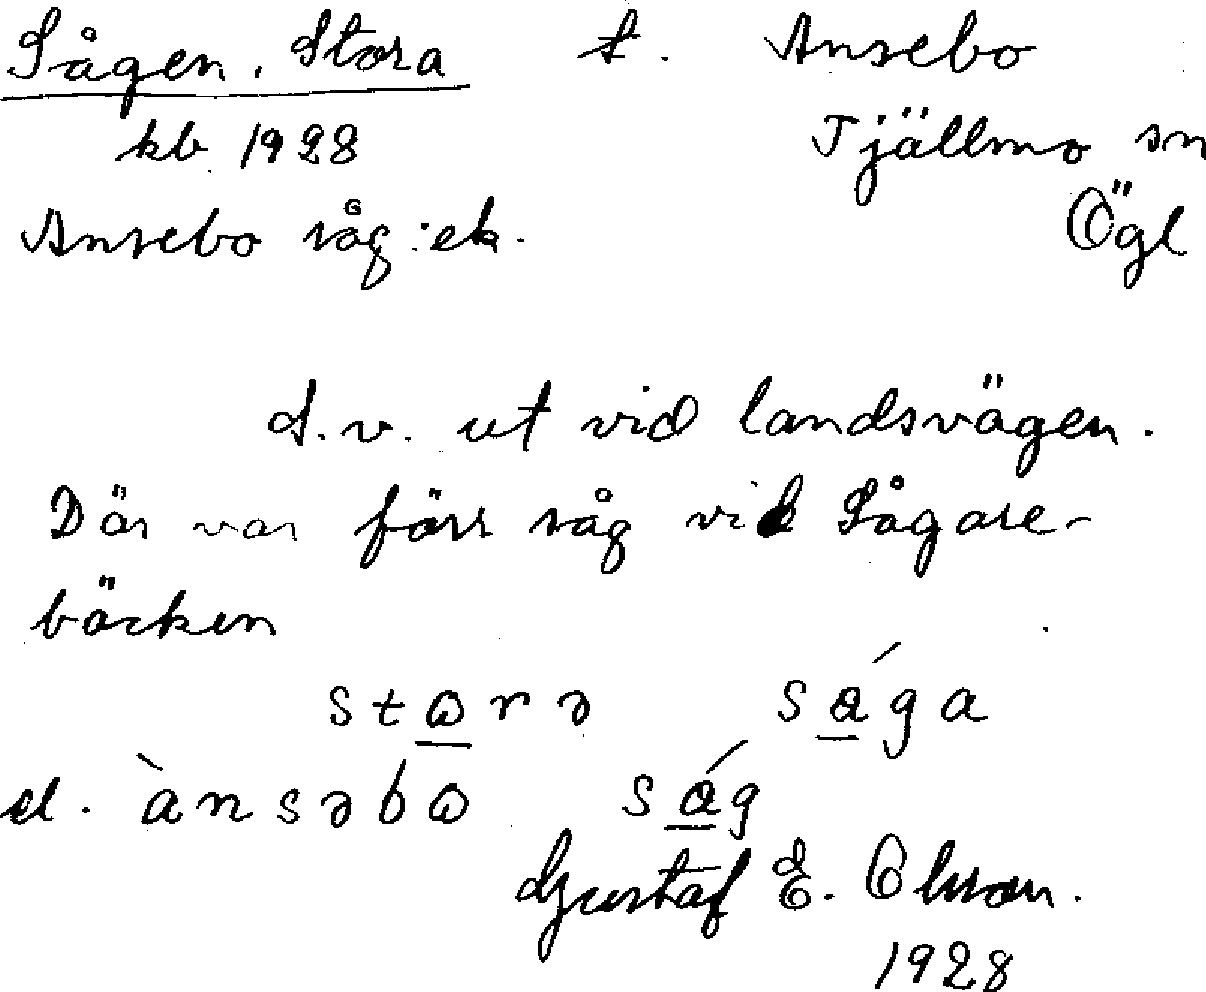 Sågen, Stora t. Ansebo
kb 1928 Tjällmo sn
Ansebo såg :ek. Ögl
S.v. ut vid landsvägen.
Där var förr såg vid Sågare-
bäcken
stɷrə sága
el. ànsəbɷ ság
Gustaf E. Olsson.
1928